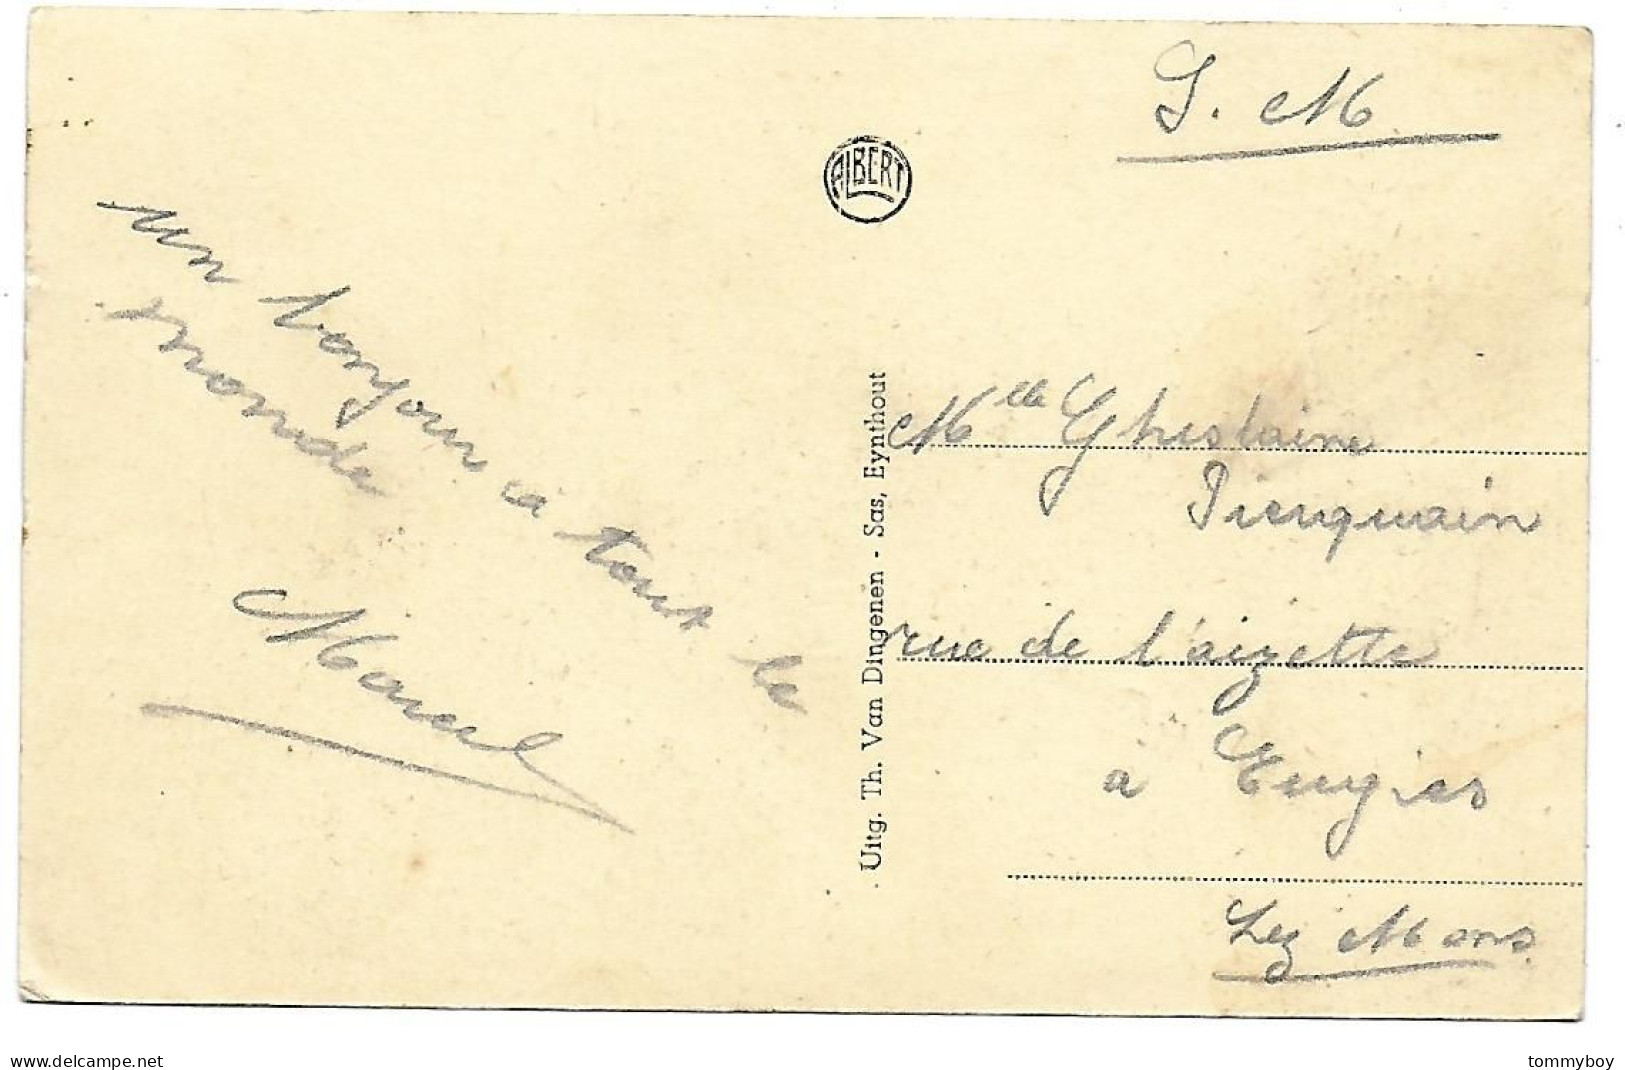 un bonjour à tous le
monde
Marcel
ALBERT
Uitg. Th. Van Dingenen - Sas, Eynthout
S. M
Mlle Ghislaine
rue de l'aizette
à Cuesmes
Lez Mons
www.delcampe.net
tommyboy